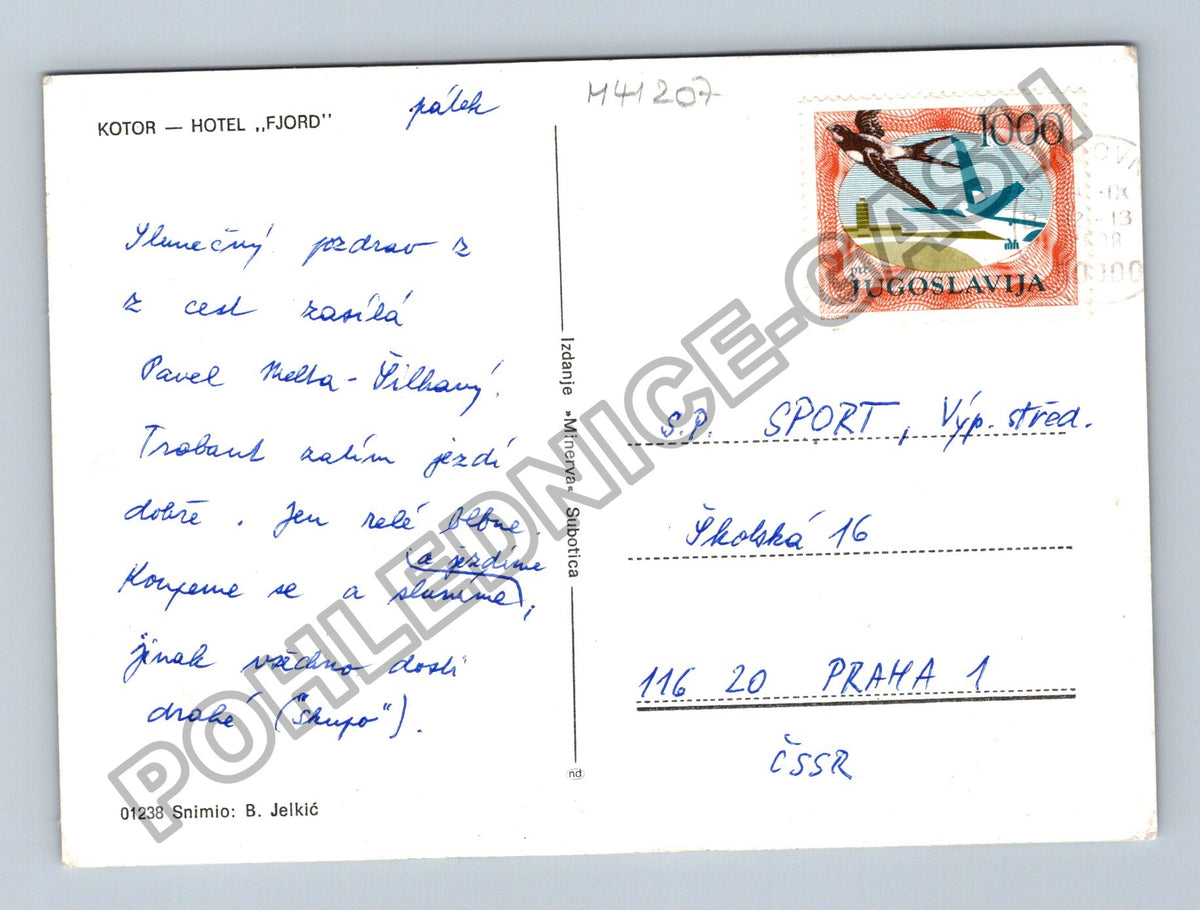 KOTOR — HOTEL „FJORD"
pátek
M41207
Slunečný pozdrav z
z cest zasílá
Pavel -Šilhavý.
Trabant zatím jezdí
dobře. Jen relé blbne.
a jezdíme
Koupeme se a sluníme,
jinak všechno dosti
drahé („skupo").
01238 Snimio: B. Jelkić
Izdanje »Minerva« Subotica
nd
1000
ptt
JUGOSLAVIJA
S.P. SPORT, Výp. střed.
Školská 16
116 20 PRAHA 1
ČSSR
POHLEDNICE-CASH